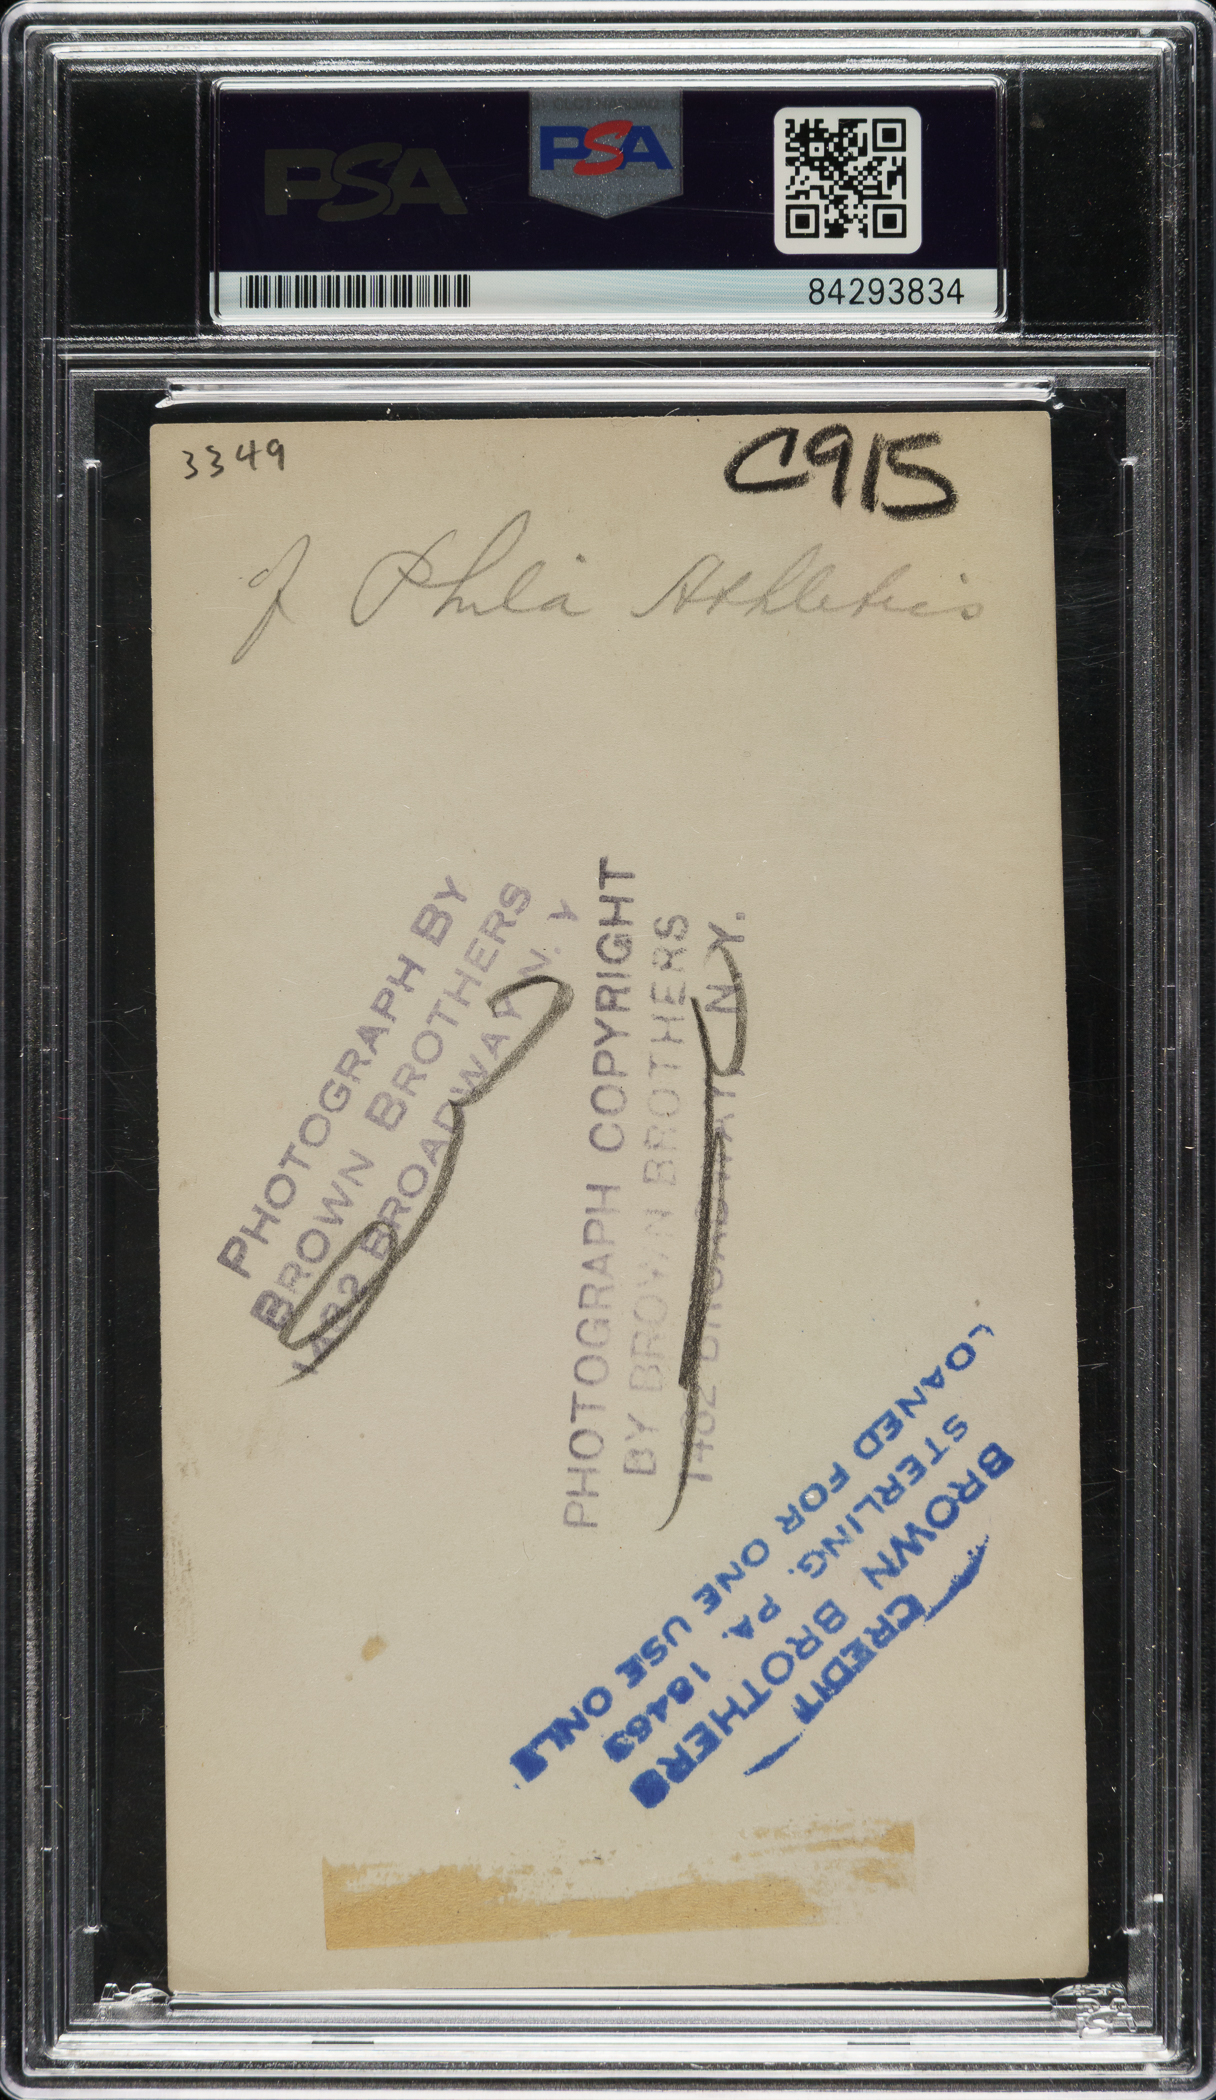 PSA
PSA
84293834
3349
C915
of Phila Athletics
PHOTOGRAPH BY
BROWN BROTHERS
1482 BROADWAY N. Y
PHOTOGRAPH COPYRIGHT
BY BROWN BROTHERS
1482 BROADWAY, N.Y.
CREDIT
BROWN BROTHERS
STERLING, PA. 18463
LOANED FOR ONE USE ONLY